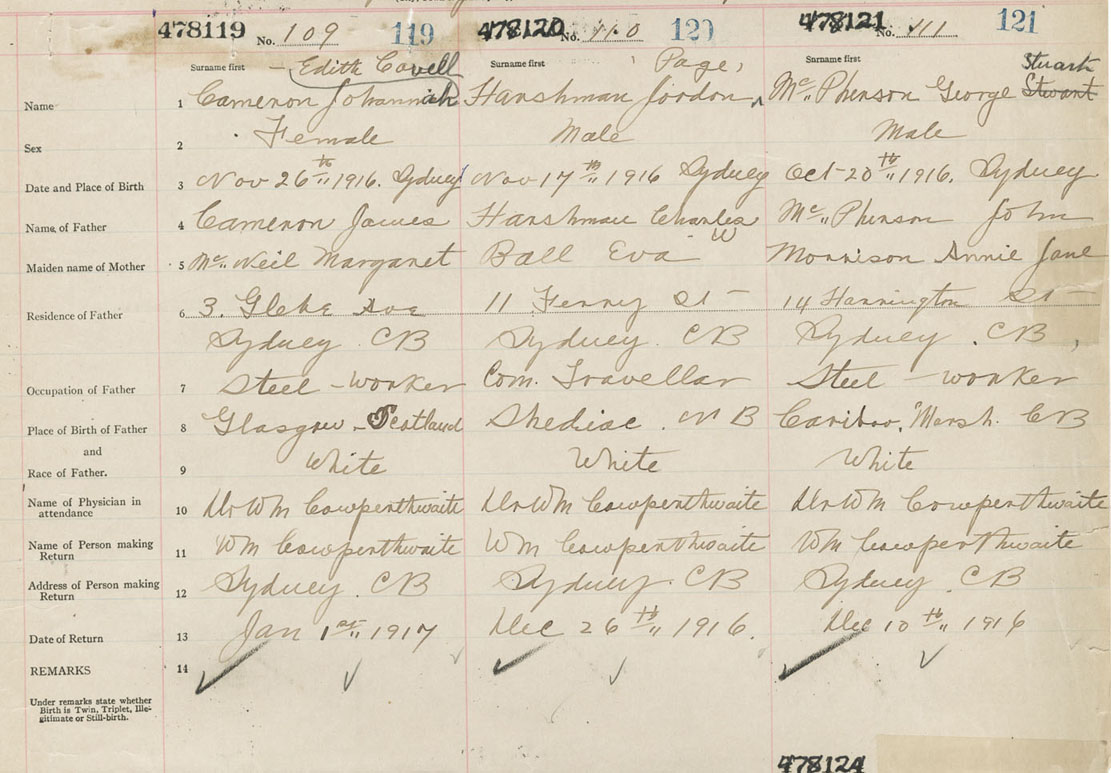 478119 No. 109 119 478120 No. 110 120 478121 No. 111 121
Surname first Edith Cavell Surname first Page, Surname first Stuart
Name 1 Cameron Johannah Harshman Gordon ^ Mc„Pherson George Stewart
Sex 2 Female Male Male
Date and Place of Birth 3 Nov 26th„ 1916. Sydney Nov 17th„ 1916 Sydney Oct 20th„ 1916. Sydney
Name of Father 4 Cameron James Harshman Charles W Mc„Pherson John
Maiden name of Mother 5 Mc„Neil Margaret Ball Eva Morrison Annie Jane
Residence of Father 6 3. Glebe Ave 11 Ferry St 14 Harrington St
Sydney. CB Sydney. CB Sydney. CB,
Occupation of Father 7 Steel-worker Com. Travellar Steel-worker
Place of Birth of Father 8 Glasgow-Scotland Shediac. NB Cariboo, Marsh. CB
and
Race of Father. 9 White White White
Name of Physician in attendance 10 Dr WM Cowperthwaite Dr WM Cowperthwaite Dr WM Cowperthwaite
Name of Person making Return 11 WM Cowperthwaite WM Cowperthwaite WM Cowperthwaite
Address of Person making Return 12 Sydney. CB Sydney. CB Sydney. CB
Date of Return 13 Jan 1st„ 1917 Dec 26th„ 1916. Dec 10th„ 1916
REMARKS 14
Under remarks state whether
Birth is Twin, Triplet, Ille-
gitimate or Still-birth.
478124